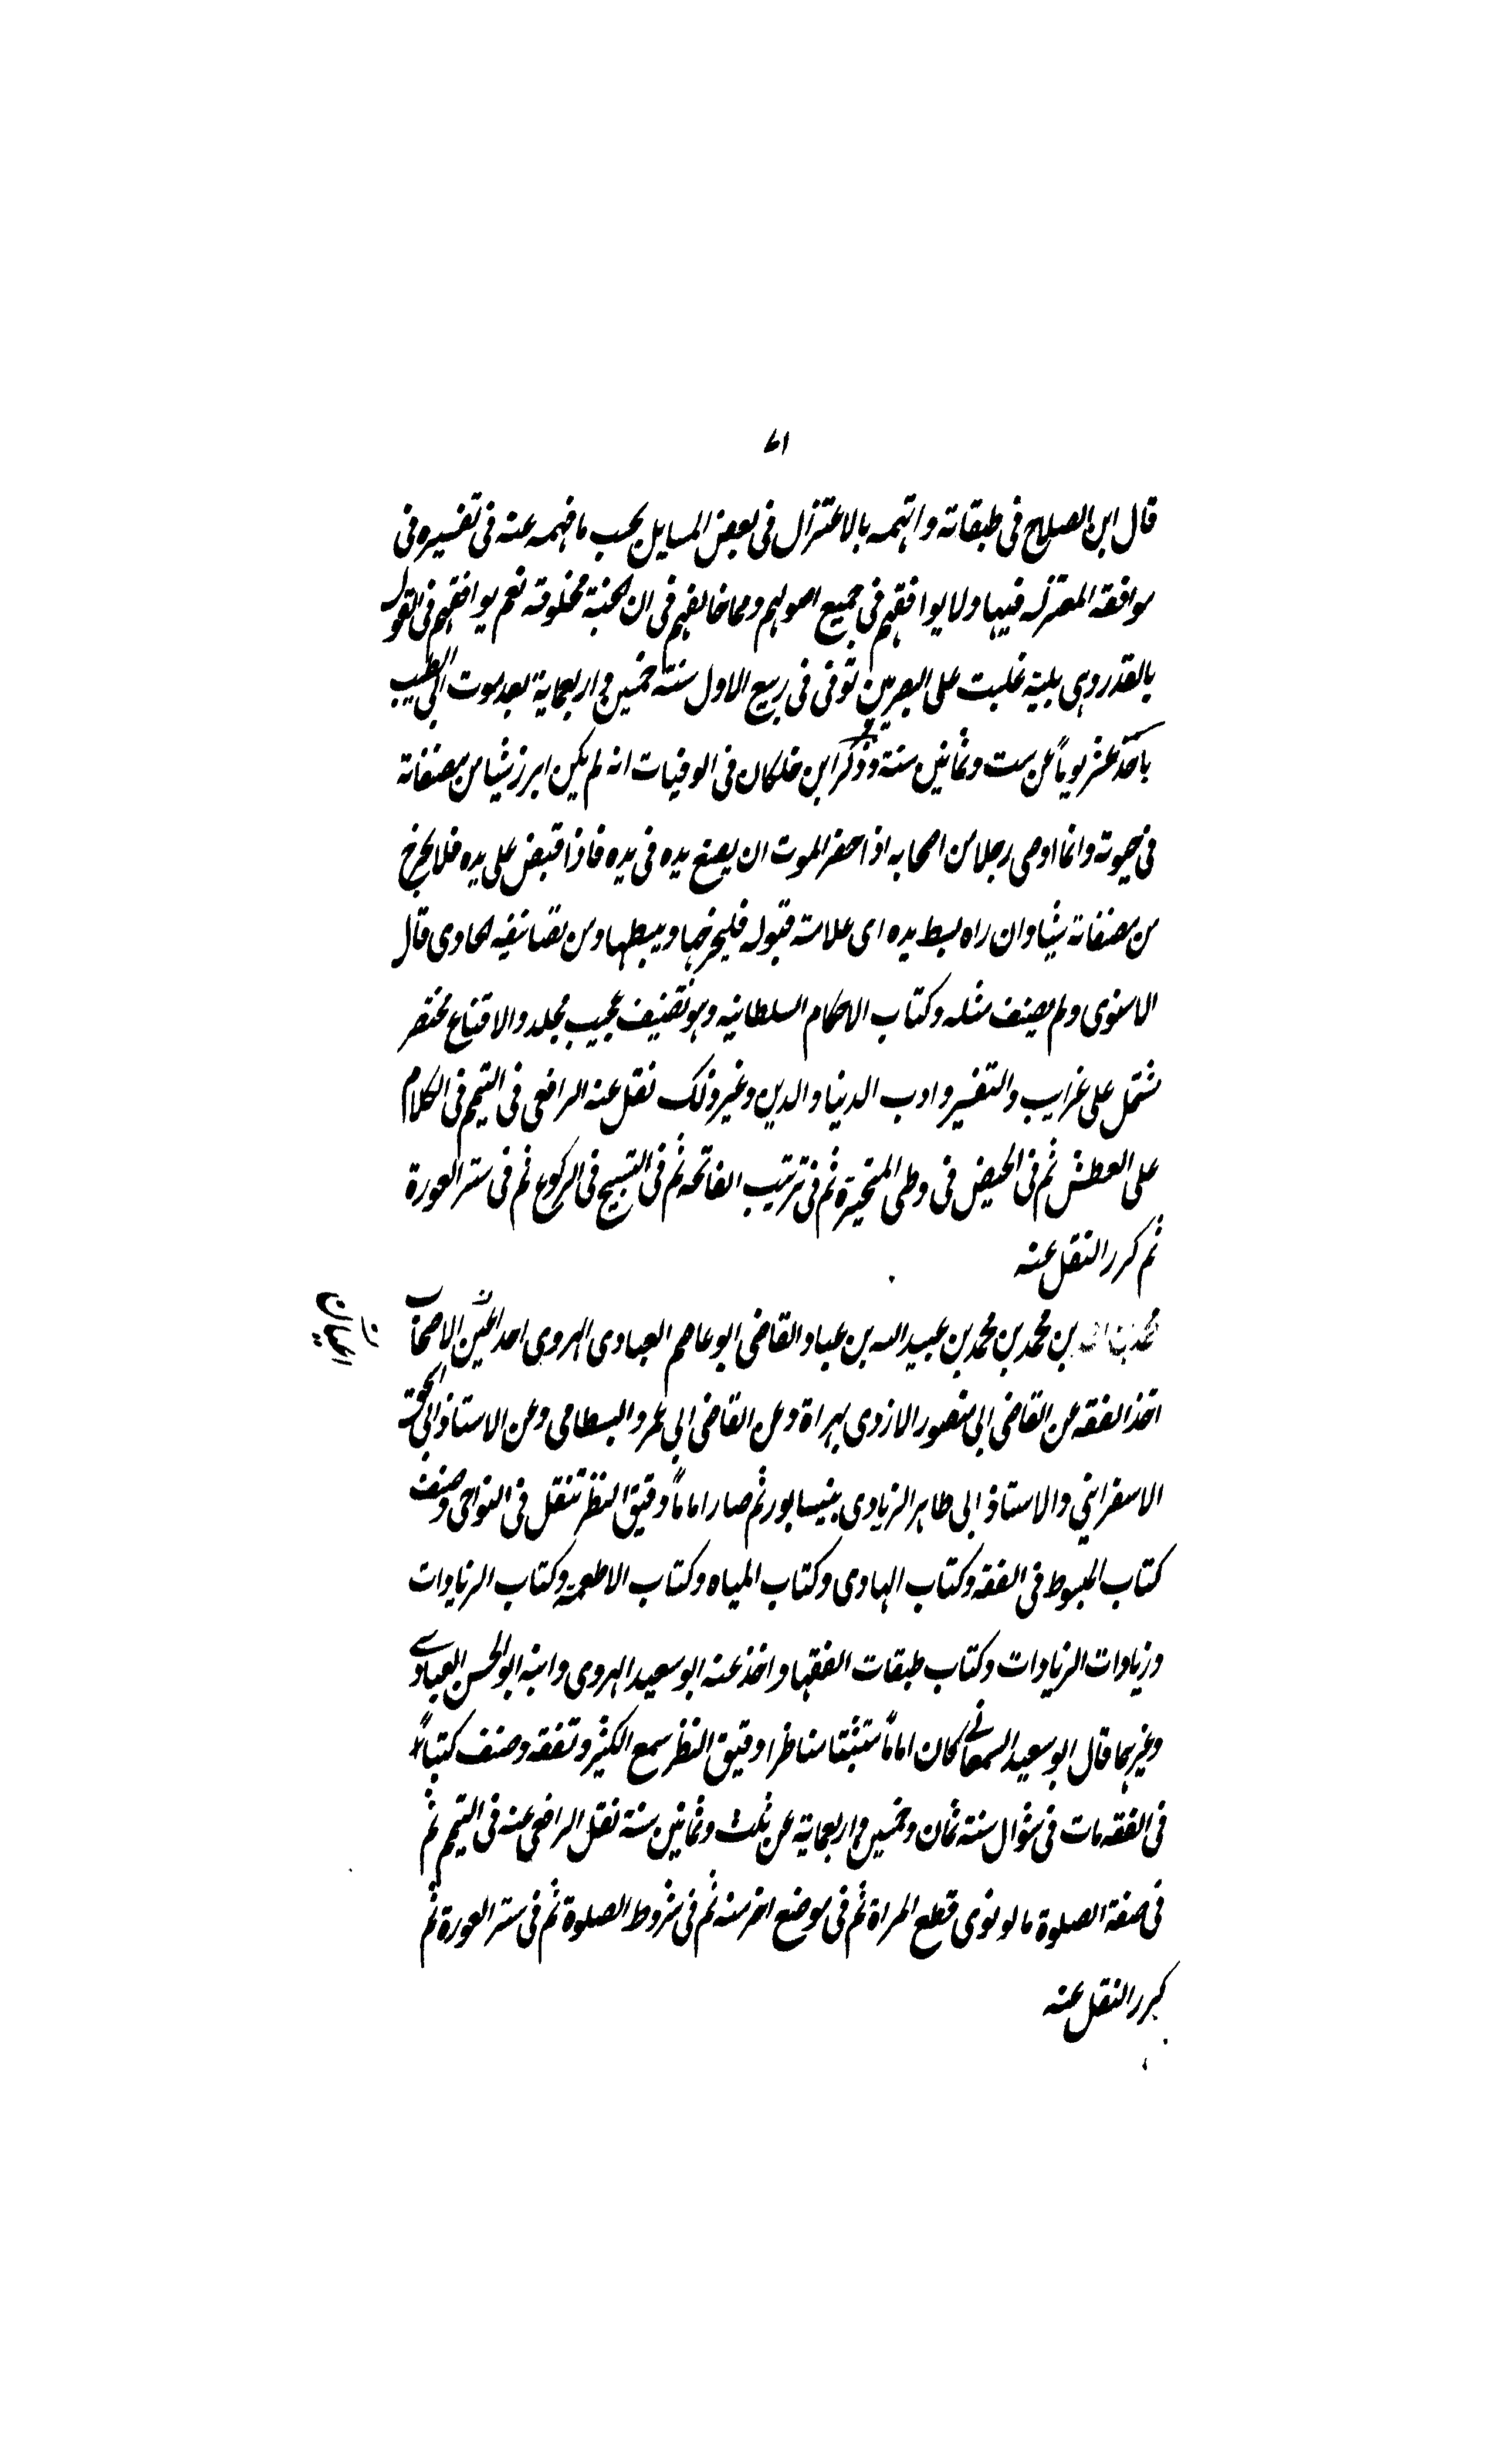 ٧١
قال ابن الصلاح فى طبقاته واتهمه بالاعتزال فى بعض المسايل بحسب ما فهمه عنه فى تفسيره فى
موافقة المعتزله فيها ولا يوافقهم فى جميع اصولهم ومما خالفهم فى ان الجنة مخلوقه نعم يوافقهم فى القول
بالقدر وهى بلية غلبت على البصريين توفى فى ربيع الاول سنته خمسين و اربعماية بعد موت ابى الطيب
باحد عشر يوماً عن ست وثمانين سنة وذكر ابن خلكان فى الوفيات انه لم يكن ابرز شيا من مصنفاته
فى حيوته وانما اوصى رجلا من اصحابه اذا حضر الموت ان يضع يده فى يده فاذا قبض على يده فلا يخرج
من مصنفاته شيا وان راه بسط يده اى علامته قبوله فليخرجها ويبسطها ومن تصانيفه الحاوى قال
الاسنوى ولم يصنف مثله وكتاب الاحكام السلطانيه وهو تصنيف عجيب مجلد والاقناع مختصر
مشتمل على غرايب والتفسير وادب الدنيا والدين وغير ذلك نقل عنه الرافعى فى التيمم فى الكلام
على العطش ثم فى الحيض فى وطى المتحيرة ثم فى ترتيب الفاتحه ثم فى التسبيح فى الركوع ثم فى ستر العورة
ثم كرر النقل عنه
محمد بن احمد بن محمد بن محمد بن عبيد الله بن عباد القاضى ابو عاصم العبادى الهروى احد اعين الاصحاب
اخذ الفقه عن القاضى ابى منصور الازدى بهراة وعن القاضى ابى عمر والبسطامى وعن الاستاذ ابى اسحق
الاسفراينى والاستاذ ابى طاهر الزيادى بنيسابور ثم صار اماماً دقيق النظر تنقل فى النواحى وصنف
كتاب المبسوط فى الفقه وكتاب الهادى وكتاب المياه وكتاب الاطعمة وكتاب الزيادات
وزيادات الزيادات وكتاب طبقات الفقها واخذ عنه ابو سعيد الهروى وابنه ابو الحسن العبادى
وغيرهما قال ابو سعيد السمعانى كان اماماً متثبتا مناظرا دقيق النظر سمع الكثير وتفقه وصنف كتباً
فى الفقه مات فى شوال سنة ثمان وخمسين و اربعماية عن ثلث وثمانين سنة نقل الرافعى عنه فى التيمم ثم
فى صفة الصلوة ما لو نوى قطع المراة ثم فى موضع اخر منه ثم فى شروط الصلوة ثم فى ستر العورة ثم
كرر النقل عنه